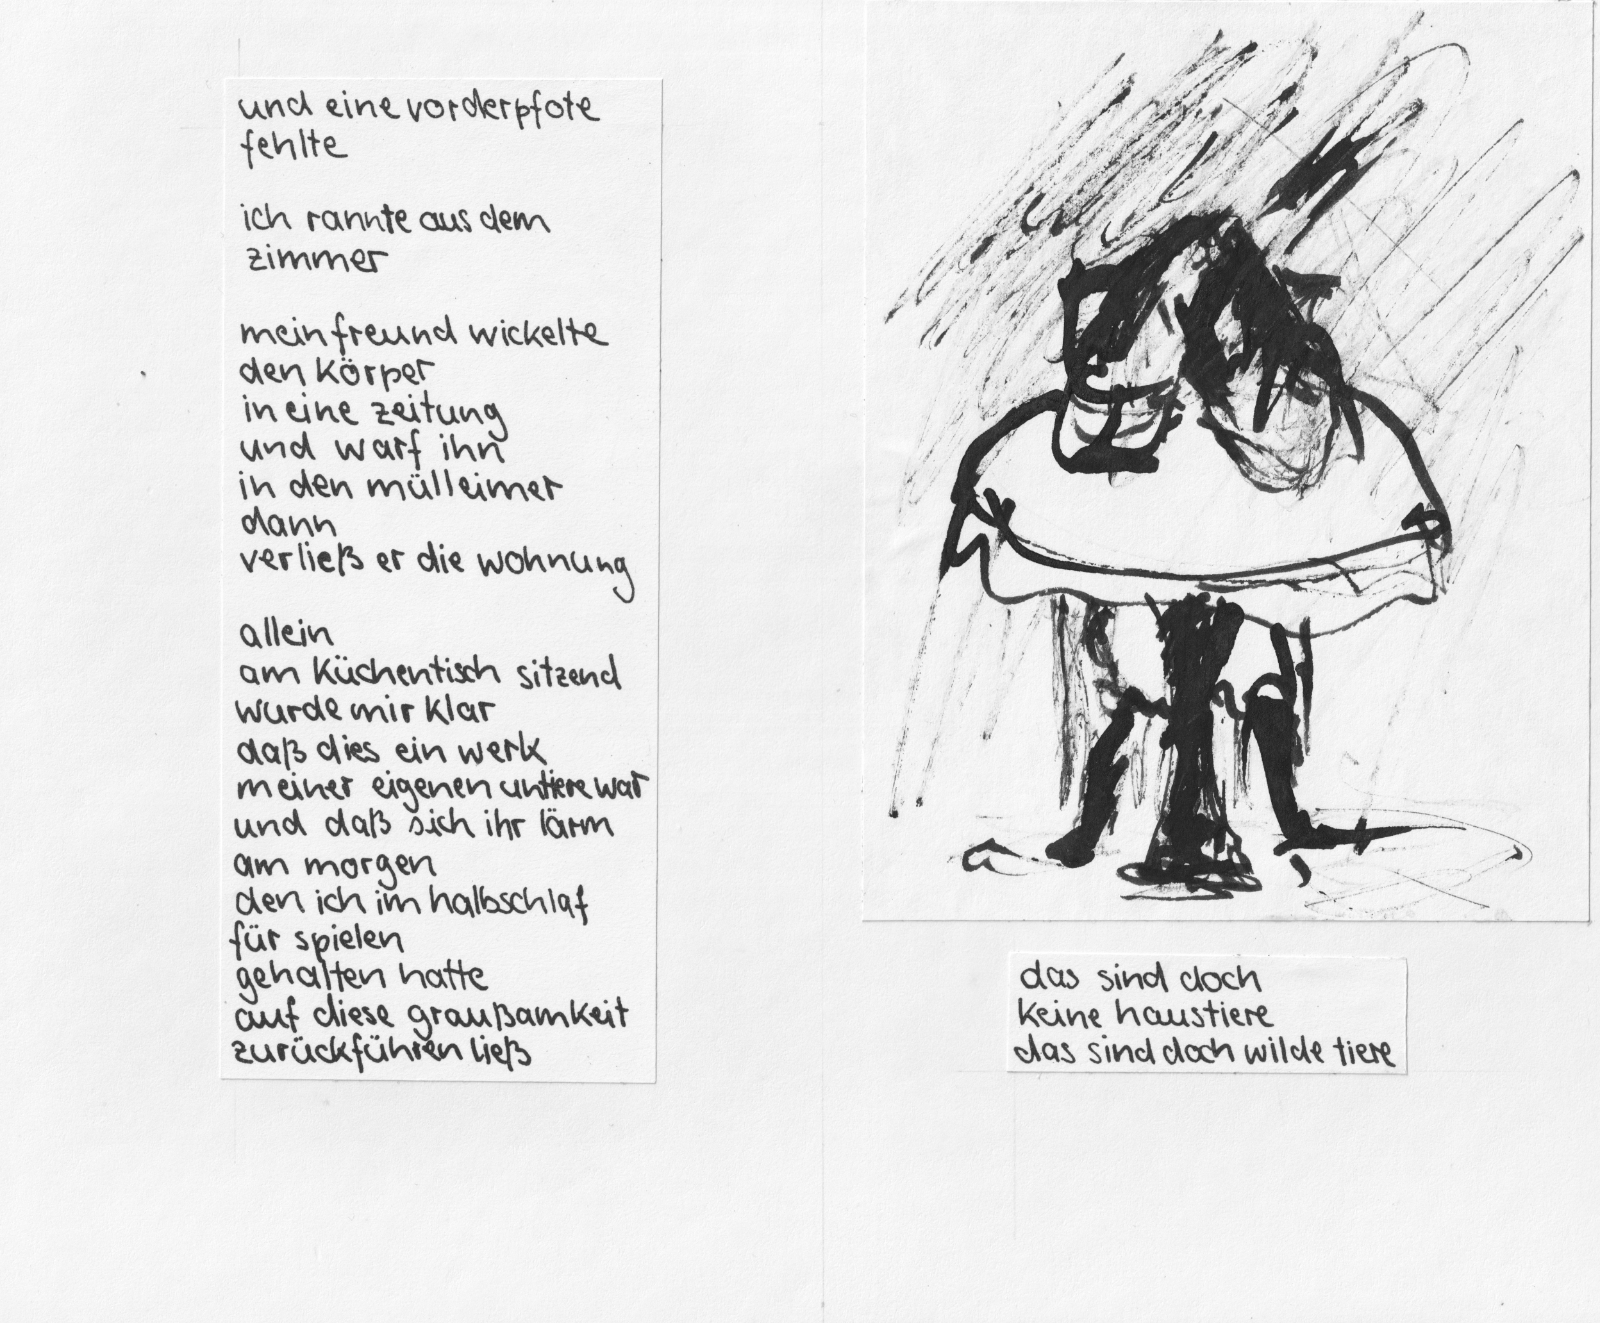 und eine vorderpfote
fehlte
ich rannte aus dem
zimmer
mein freund wickelte
den körper
in eine zeitung
und warf ihn
in den mülleimer
dann
verließ er die wohnung
allein
am küchentisch sitzend
wurde mir klar
daß dies ein werk
meiner eigenen untiere war
und daß sich ihr lärm
am morgen
den ich im halbschlaf
für spielen
gehalten hatte
auf diese graußamkeit
zurückführen ließ
das sind doch
keine haustiere
das sind doch wilde tiere